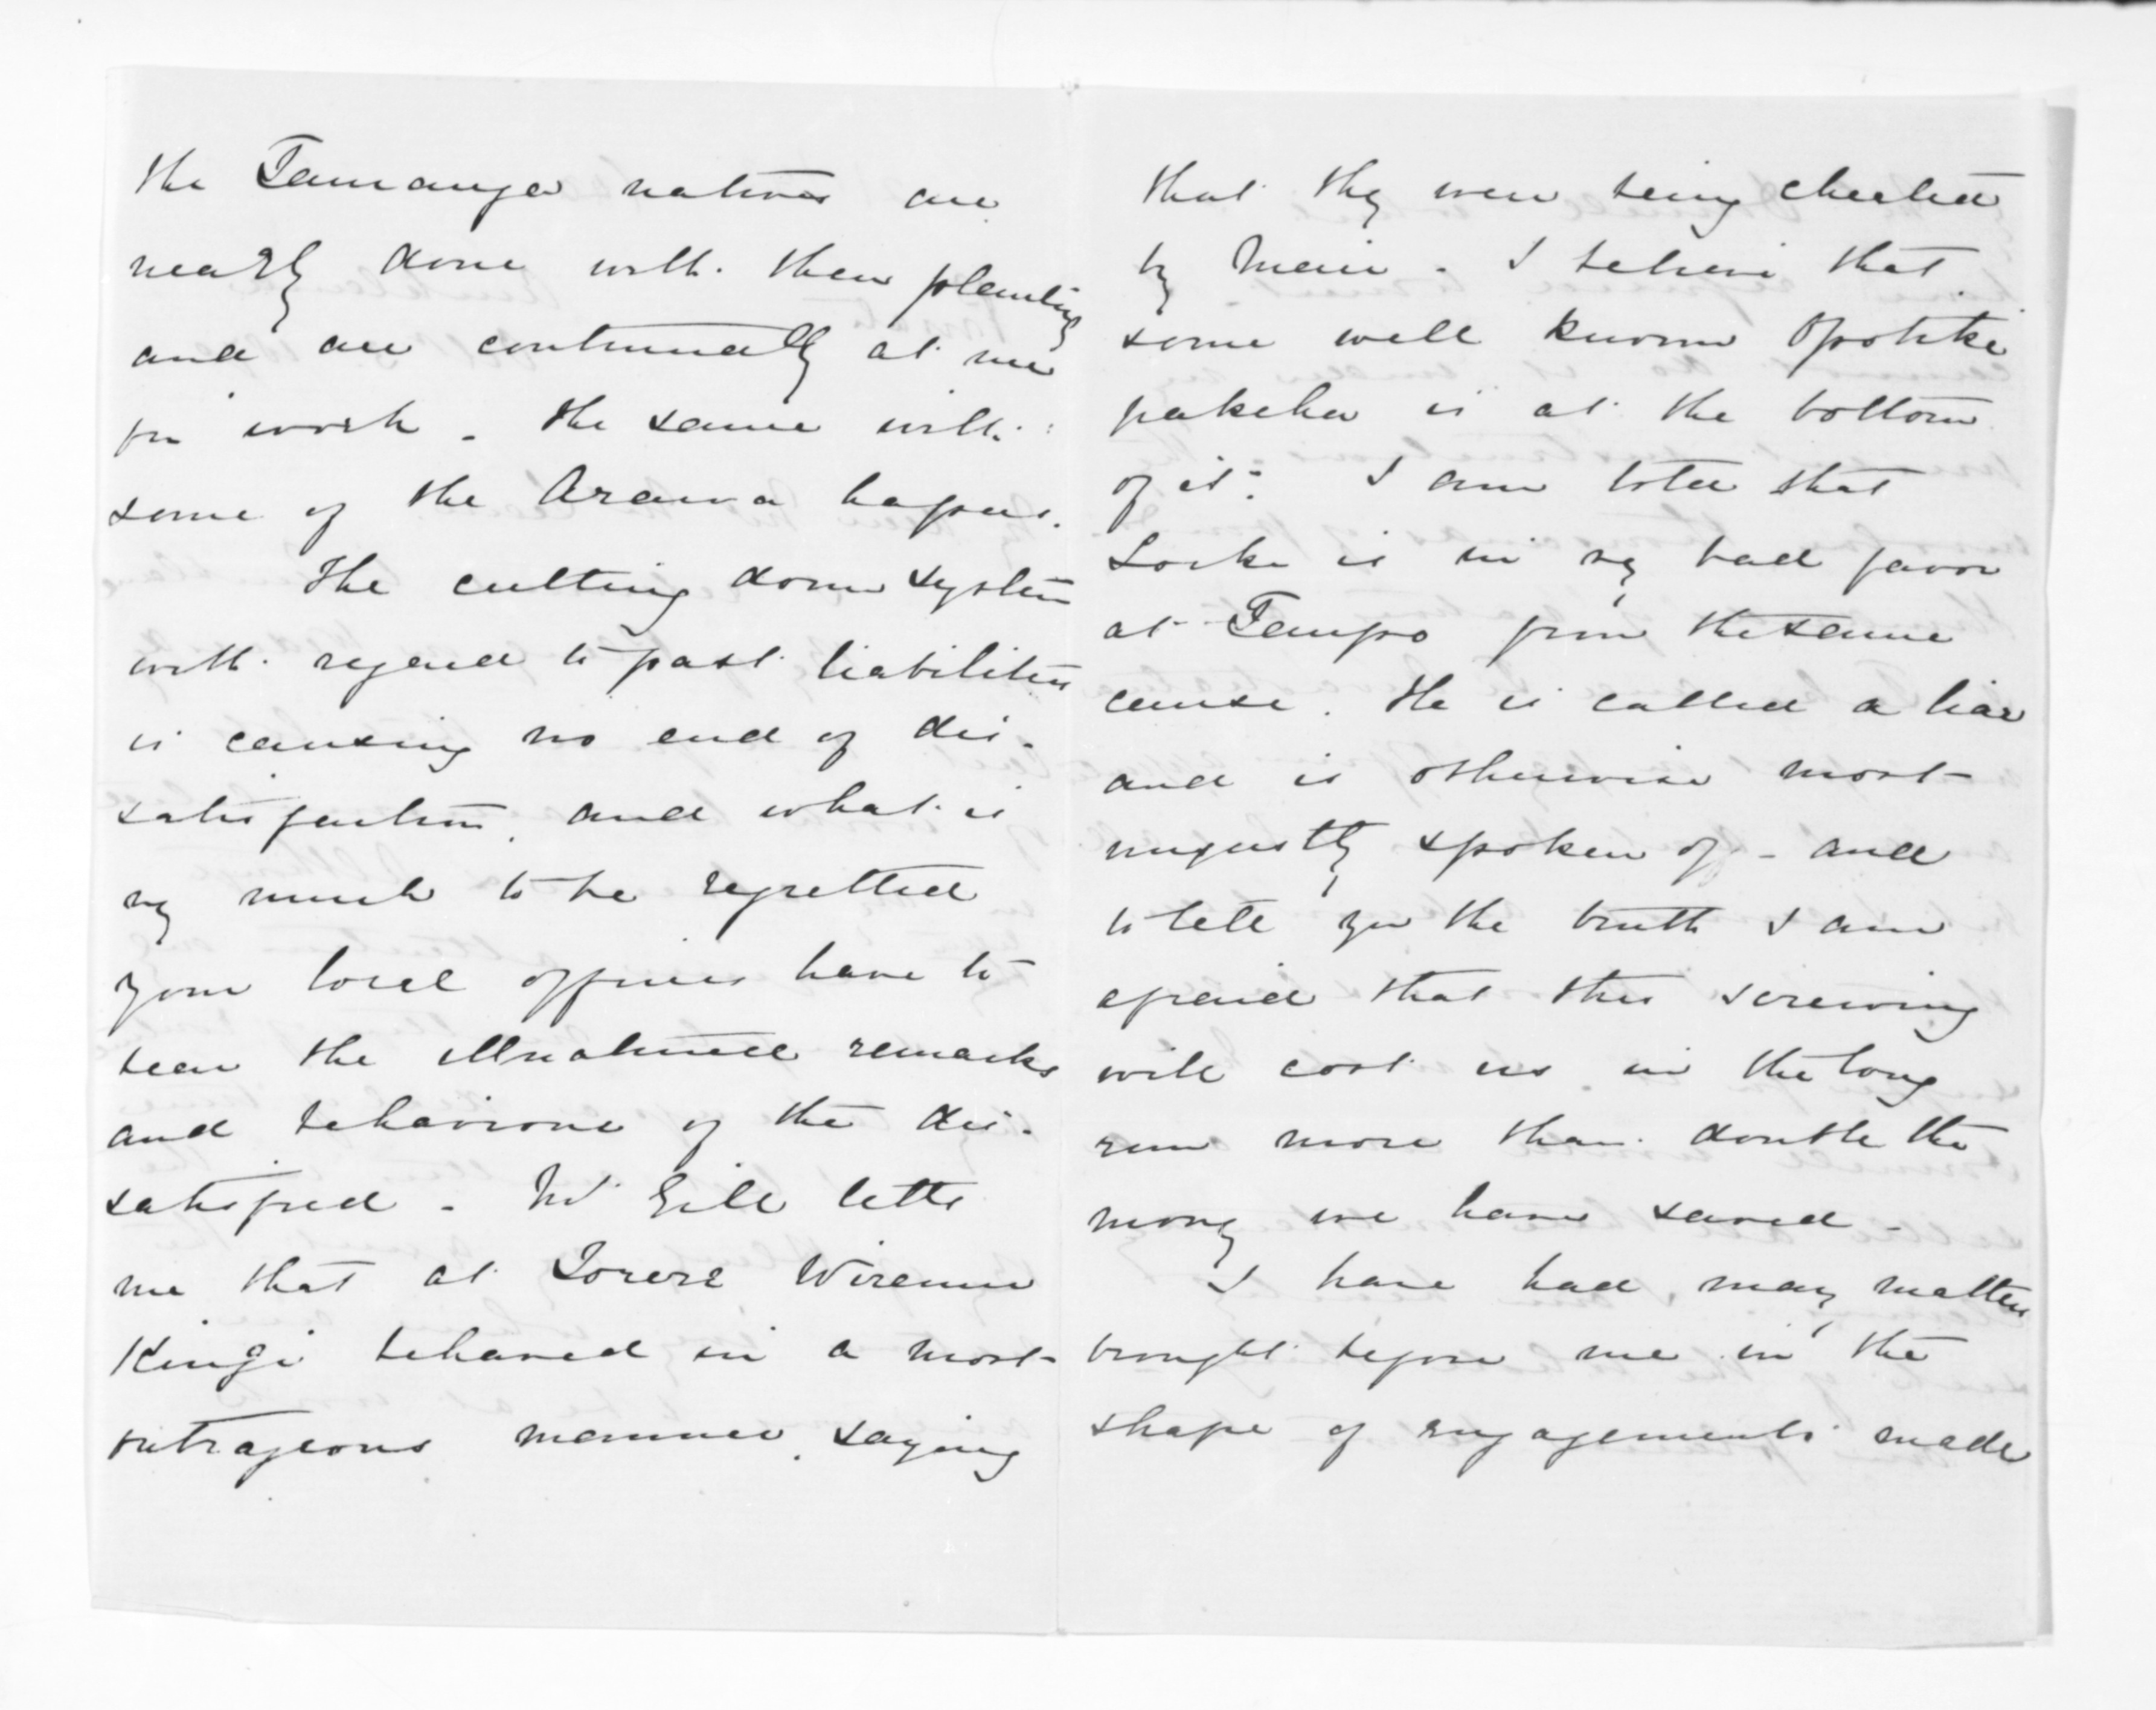 the Tauranga natives are
nearly done with their planting
and are continually at me
for work - the same with
some of the Arawa hapus.
The cutting down system
with regard to past liabilities
is causing no end of dis-
satisfaction, and what is
vy much to be regretted
your local officers have to
bear the illnatured remarks
and behaviour of the dis-
satisfied - Mr Gill tells
me that at Torere Wiremu
Kingi behaved in a most
outrageous manner, saying
that they were being cheated
by Mair - I believe that
some well known Opotiki
pakeha is at the bottom
of it. I am told that
Locke is in vy bad favor
at Taupo from the same
cause. He is called a liar
and is otherwise most
unjustly spoken of - and
to tell you the truth I am
afraid that this screwing
will cost us in the long
run more than double the
money we have saved -
I have had many matters
brought before me in the
shape of engagements made